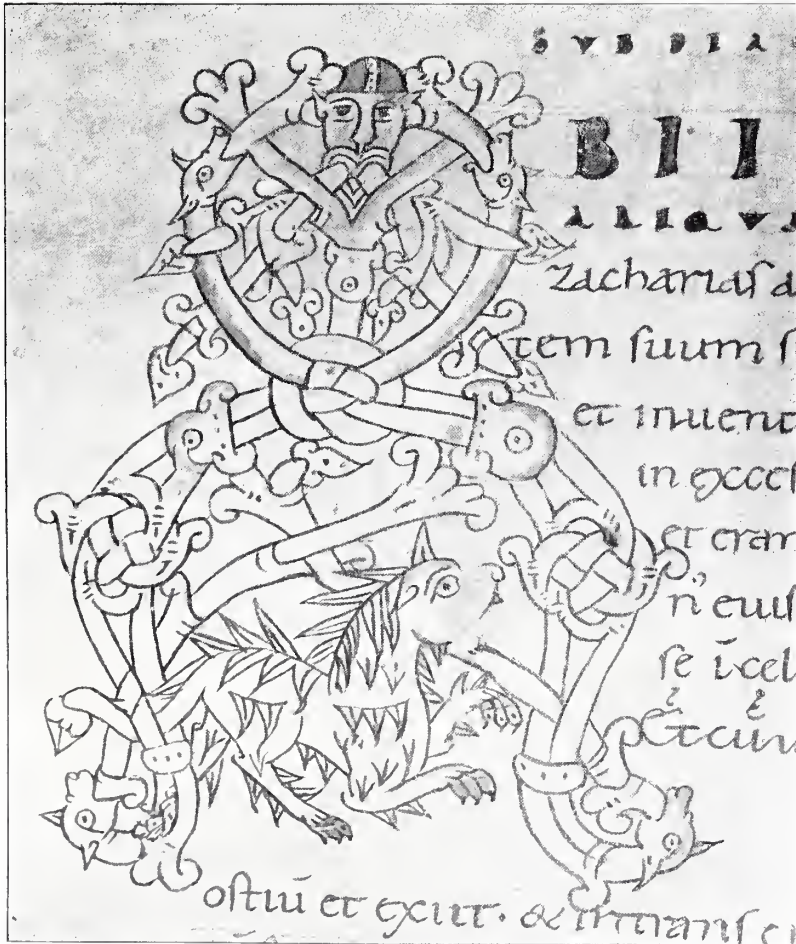 SUB DIA
BII
ALIQUA
zacharias a
tem suum s
et inuent
in excels
et eran
n̄ eius
se i cel
Et cum
ostiū et exiit. & intrans e